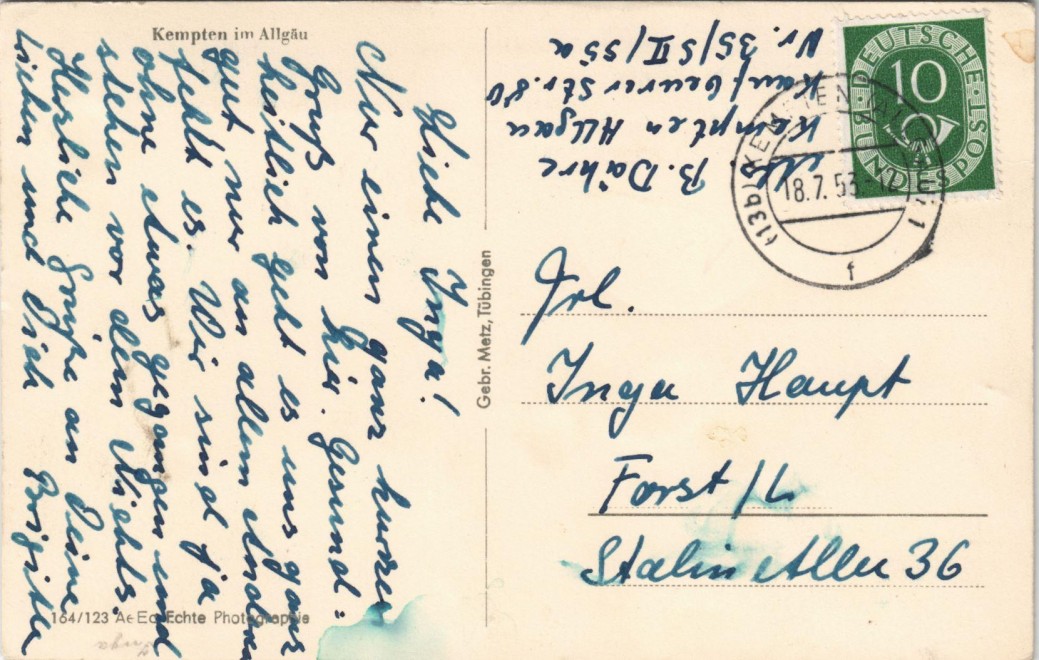 Kempten im Allgäu
Liebe Inga!
Nur einen ganz kurzen
Gruß von hier. Gesund=
heitlich geht es uns ganz
gut nur an allem Andern
fehlt es. Wir sind ja
ohne etwas gegangen und
stehen vor dem Nichts.
Herzliche Grüße an Deine
lieben und Dich Brigitte
164/123 Ae Echte Photographie
Inga
Gebr. Metz, Tübingen
B. Dähre
Kempten Allgäu
Kaufbeurer Str. 80
Nr. 35/S II/55a
DEUTSCHE BUNDESPOST
10
(13b) KEMPTEN (ALLGÄU) 1
18.7.53.-12
f
Frl.
Inga Haupt
Forst/L
Stalin Allee 36